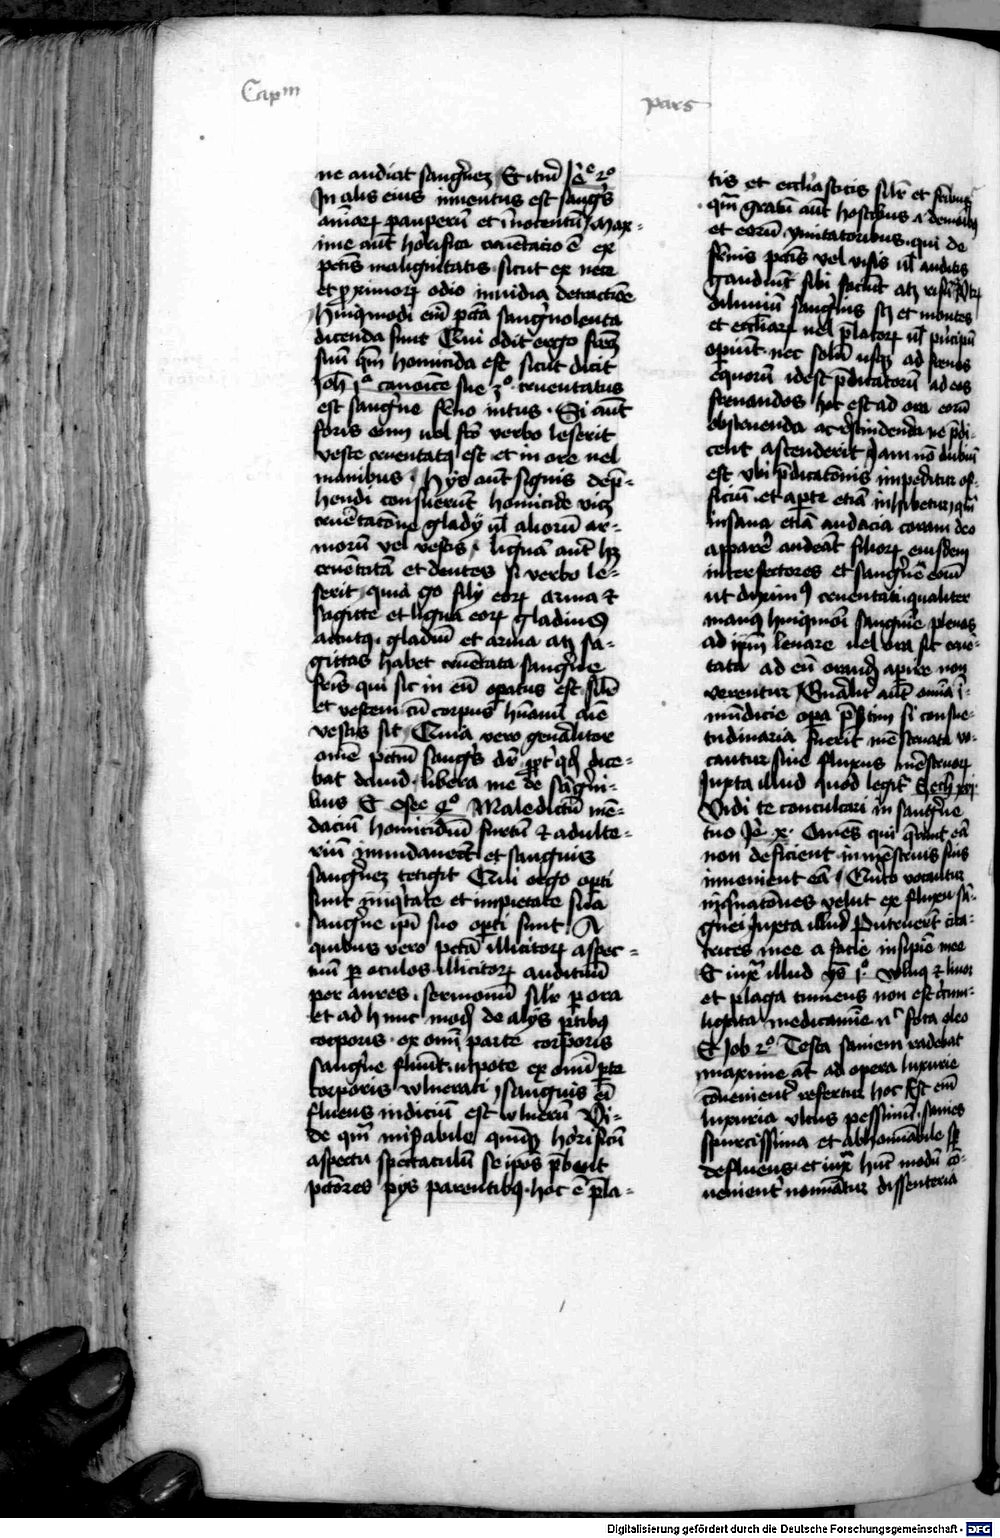 Capm
pars
ne audiat sanguinem Et iterum Je 2o
In alis eius inventus est sanguis
animarum pauperum et innocentum Max-
ime autem horrifica cruentatio est ex
peccatis malignitatis sicut ex nece
et proximorum odio invidia detractione
huiusmodi enim peccata sanguinolenta
dicenda sunt Qui odit ergo fratrem
suum quoniam homicida est sicut dicit
Joh 1a canonice sue 3o cruentatus
est sanguine intus Si autem
foris eum vel verbo leserit
veste cruentatus est et in ore vel
manibus hys autem signis depre-
hendi consueverunt homicide
cruentatione gladii vel aliorum ar-
morum vel vestis linguam autem habet
cruentatam et dentes si verbo le-
serit quia filii eorum arma et
sagitte et lingua eorum gladius
acutus gladium et arma atque sa-
gittas habet cruentata sanguine
qui sic in eum operatus est
et vestem cum corpus humanum
vestis sit Quia vero generaliter
omne peccatum sanguis dicitur dice-
bat david libera me de sangui-
bus Et osee 4o Maledictum men-
dacium homicidium furtum et adulte-
rium inundaverunt et sanguis
sanguinem tetigit Qui ergo operti
sunt iniquitate et impietate sua
sanguine suo operti sunt A
quibus vero peccata illicitorum aspec-
tuum per oculos illicitorum auditum
per aures sermonum per ora
et ad hunc modum de aliis partibus
corporis ex omni parte corporis
sanguine fluunt utpote ex omni parte
corporis vulnerati sanguis enim
fluens indicium est vulnerum Vi-
de quam miserabile quamque horrificum
aspectu spectaculum se ipsos prebent
peccatores piis parentibus hoc est prela-
tis et ecclesiasticis et
gratum autem hostibus
et eorum imitatoribus qui de
peccatis vel visis vel auditis
gaudium sibi faciunt atque
diluvium sanguinis et montes
et prelatorum vel principum
operiunt nec solum usque ad frenos
equorum idest predicatorum ad eos
frenandos hoc est ad ora eorum
obstruenda ne predi-
cent ascenderit Jam non dubium
est ubi predicationis impeditur of-
ficium et aperte etiam inhibetur
insana etiam audacia coram deo
apparere audeant filiorum eiusdem
interfectores et sanguine eorum
ut diximus cruentati qualiter
manus huiusmodi sanguine plenas
ad ipsum levare vel ora sic cruen-
tata ad eum orandum aperire non
verentur Generaliter autem omnia in-
mundicie opera si consue-
tudinaria fuerint menstruata vo-
cantur sive fluxus menstruorum
Juxta illud quod legitur Ezech xvi
Vidi te conculcari in sanguine
tuo Je x Omnes qui querunt eam
non deficient in menstruis suis
invenient eam vocantur
velut ex fluxu san-
guinei Juxta illud Putruerunt cica-
trices mee a facie insipientie mee
Et iuxta illud ys 1o vulnus et livor
et plaga tumens non est circum-
ligata medicamine nec fota oleo
Et Job 2o Testa saniem radebat
maxime autem ad opera luxurie
convenienter refertur hoc Est enim
luxuria ulcus pessimum sanies
spurcissima et abhominabile
defluens et iuxta hunc modum con-
venienter nominatur dissenteria
Digitalisierung gefördert durch die Deutsche Forschungsgemeinschaft - DFG